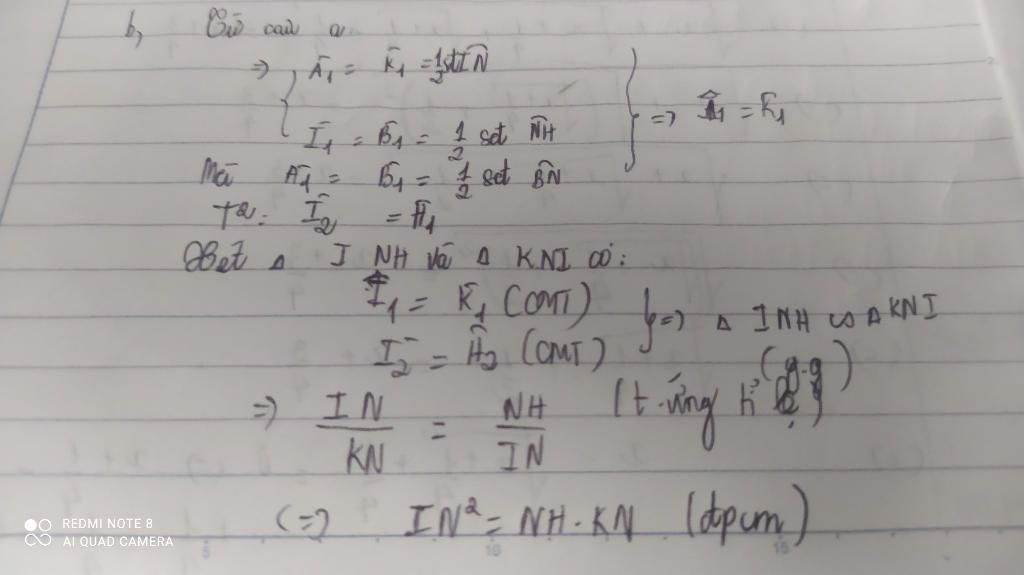 b, Từ câu a
=> { Â1 = K̂1 = 1/2 sđ IN
Î1 = B̂1 = 1/2 sđ NH } => Î1 = K̂1
Mà Â1 = B̂1 = 1/2 sđ BN
T²: Î2 = Ĥ1
Xét Δ INH và Δ KNI có:
Î1 = K̂1 (CMT)
Î2 = Ĥ2 (CMT) } => Δ INH ∽ Δ KNI
(g.g)
=> IN/KN = NH/IN (t.ứng tỉ lệ)
<=> IN² = NH . KN (đpcm)
REDMI NOTE 8
AI QUAD CAMERA
5 10 15